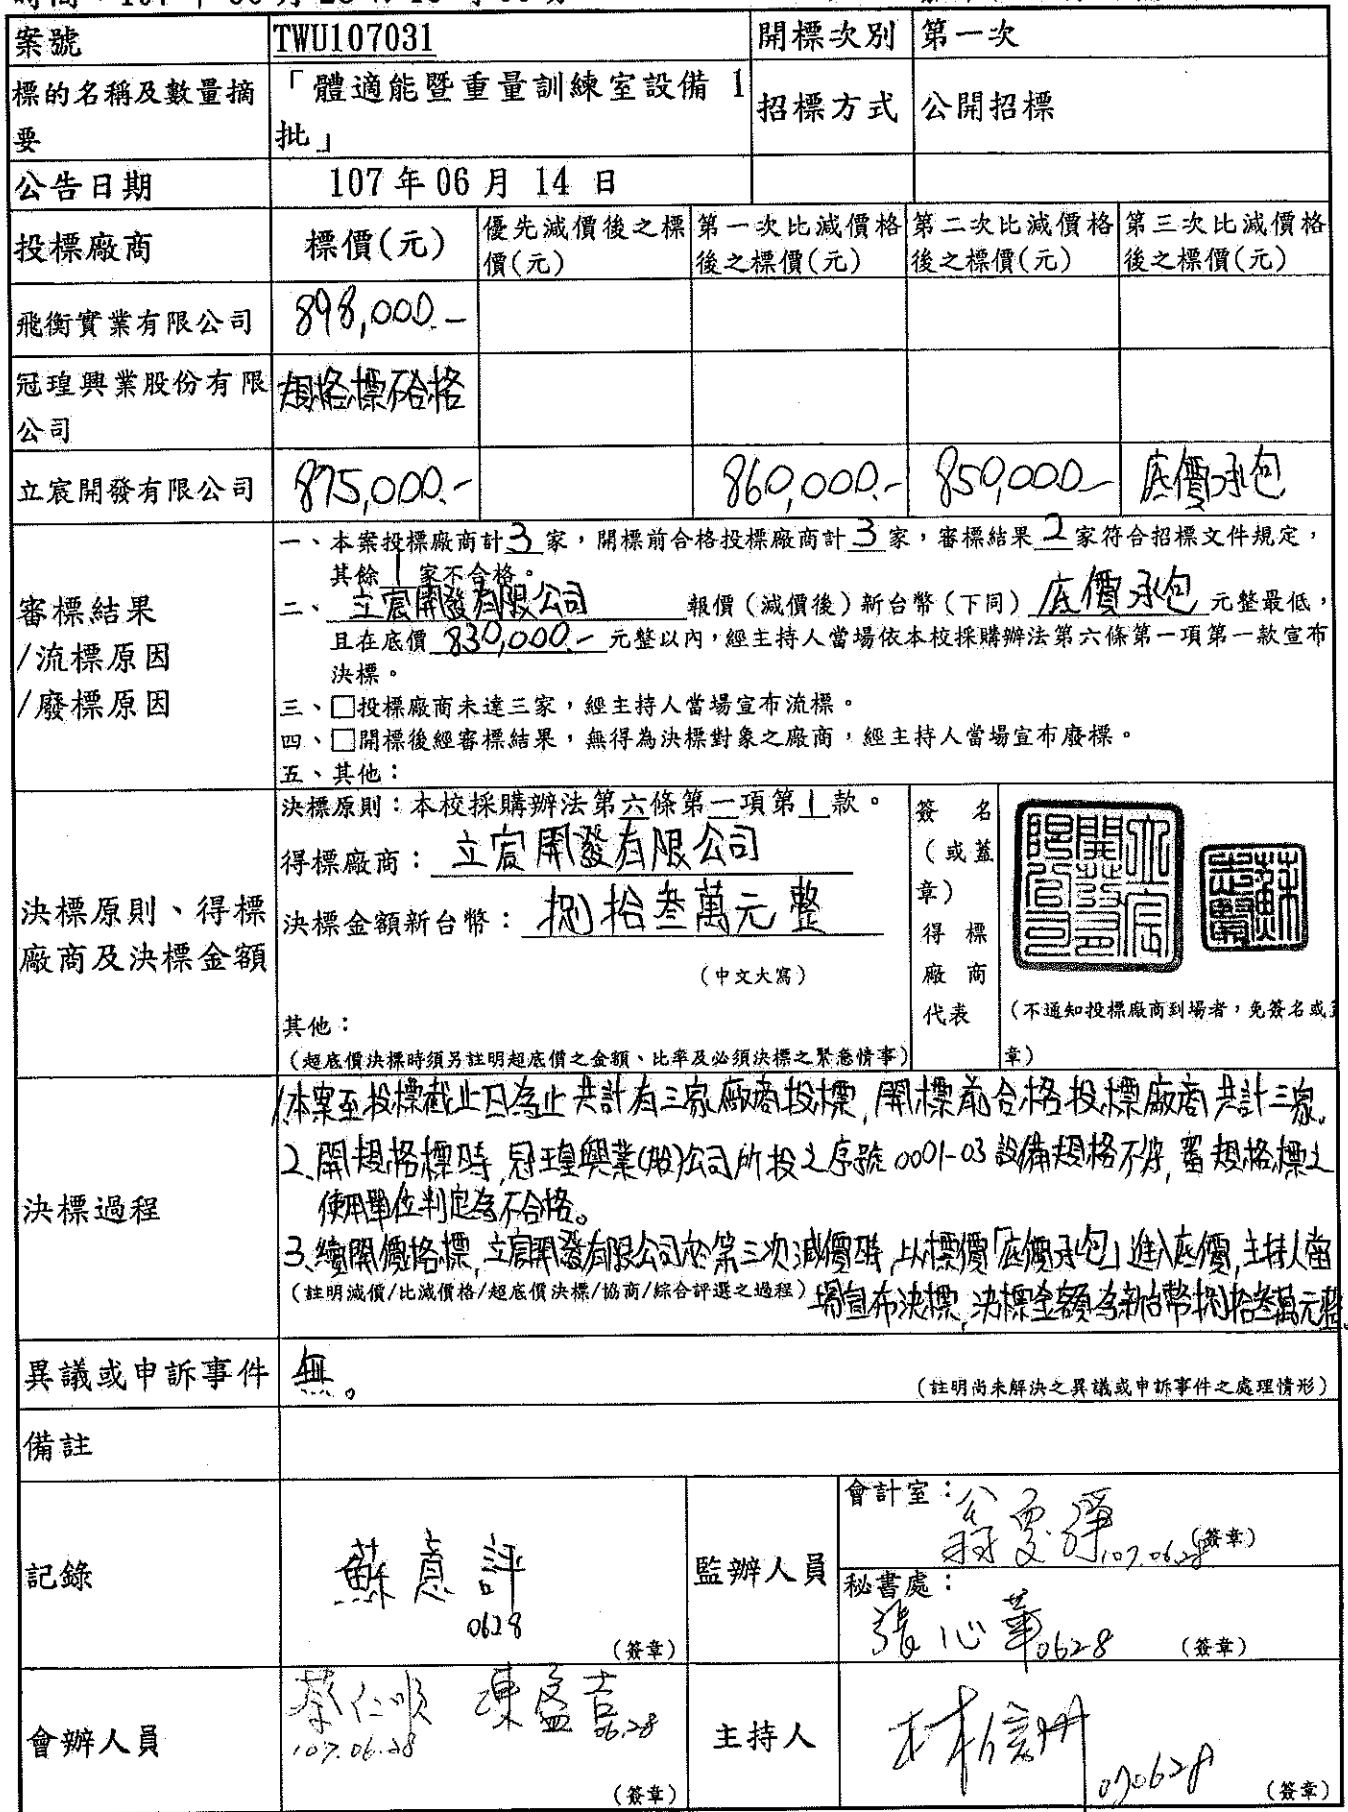 案號 TWU107031 開標次別 第一次
標的名稱及數量摘要 「體適能暨重量訓練室設備 1批」 招標方式 公開招標
公告日期 107 年 06 月 14 日
投標廠商 標價(元) 優先減價後之標價(元) 第一次比減價格後之標價(元) 第二次比減價格後之標價(元) 第三次比減價格後之標價(元)
飛衡實業有限公司 898,000.-
冠瑝興業股份有限公司 規格標不合格
立宸開發有限公司 875,000.- 860,000.- 850,000.- 底價承包
審標結果
/流標原因
/廢標原因
一、本案投標廠商計 3 家，開標前合格投標廠商計 3 家，審標結果 2 家符合招標文件規定，
其餘 1 家不合格。
二、 立宸開發有限公司 報價(減價後)新台幣(下同) 底價承包 元整最低，
且在底價 830,000.- 元整以內，經主持人當場依本校採購辦法第六條第一項第一款宣布
決標。
三、□投標廠商未達三家，經主持人當場宣布流標。
四、□開標後經審標結果，無得為決標對象之廠商，經主持人當場宣布廢標。
五、其他：
決標原則、得標
廠商及決標金額
決標原則：本校採購辦法第六條第一項第1款。
得標廠商： 立宸開發有限公司
決標金額新台幣： 捌拾叁萬元整
(中文大寫)
其他：
(超底價決標時須另註明超底價之金額、比率及必須決標之緊急情事)
簽名
(或蓋
章)
得標
廠商
代表
(不通知投標廠商到場者，免簽名或
章)
決標過程
1.本案至投標截止日為止共計有三家廠商投標,開標前合格投標廠商共計三家。
2.開規格標時,冠瑝興業(股)公司所投之序號0001-03設備規格不符,審規格標之
使用單位判定為不合格。
3.續開價格標,立宸開發有限公司於第三次減價時,以標價「底價承包」進入底價,主持人當
(註明減價/比減價格/超底價決標/協商/綜合評選之過程) 場宣布決標,決標金額為新台幣捌拾叁萬元整。
異議或申訴事件 無。 (註明尚未解決之異議或申訴事件之處理情形)
備註
記錄 蘇意評 0628 (簽章)
監辦人員
會計室： 107.06.28 (簽章)
秘書處： 張心華 0628 (簽章)
會辦人員 蔡仁順 107.06.28 陳盈吉 06.28 (簽章)
主持人 1070628 (簽章)